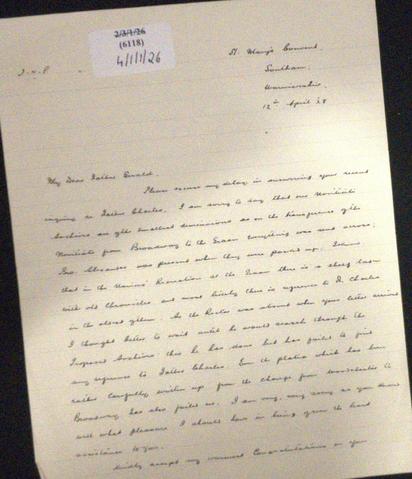 2/3/1/26
(6118)
4/1/1/26
J.M.J.
St. Mary's Convent,
Southam,
Warwickshire.
12th April '58
My Dear Father Gerald,
Please excuse my delay in answering your recent
enquiry re Father Charles. I am sorry to say that our Novitiate
Archives are of the smallest dimensions as on the transference of the
Novitiate from Broadway to the Graan everything was sent across;
was present when they were packed up. I know
that in the Novices' Recreation at the Graan there is a
with old Chronicles and most likely there is reference to Fr. Charles
in the oldest of them. As the Rector was absent when your letter arrived
I thought better to wait until he would search through the
Archives this he has done but has failed to find
any reference to Father Charles. Even the platea which has been
rather carefully written up from the change from to
Broadway has also failed us. I am very, very sorry as you know
well what pleasure I should have in being given the least
assistance to you.
Kindly accept my warmest Congratulations on your